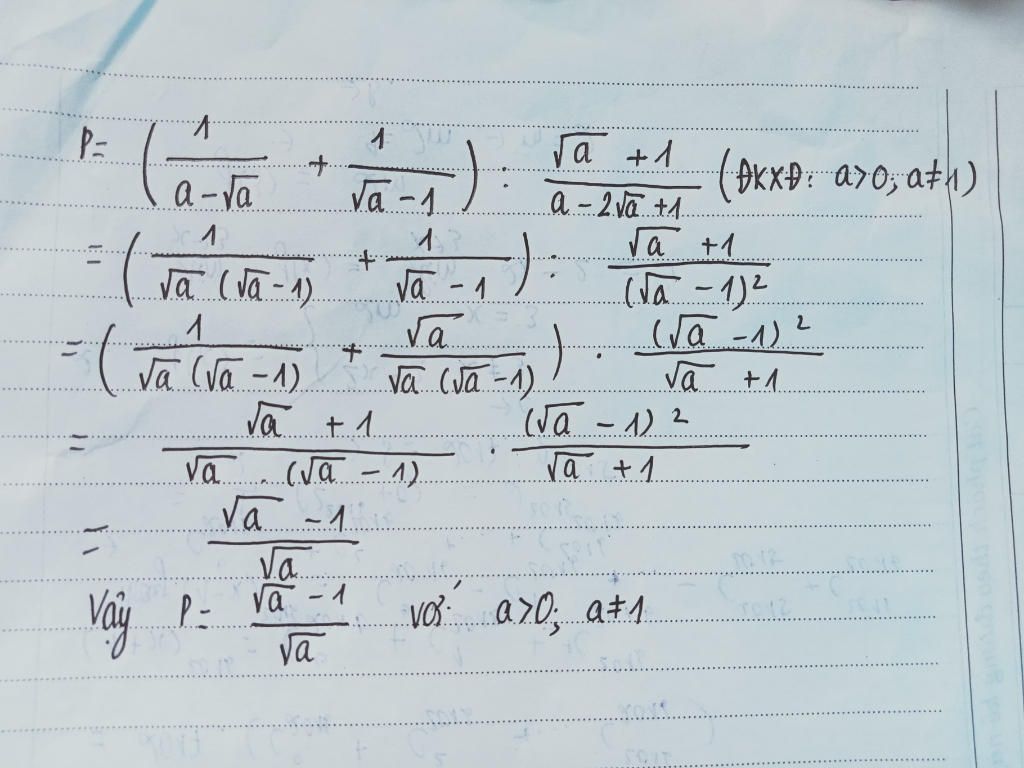 P= (1/(a-√a) + 1/(√a-1)) : (√a+1)/(a-2√a+1) (ĐKXĐ: a>0; a≠1)
= (1/(√a(√a-1)) + 1/(√a-1)) : (√a+1)/(√a-1)²
= (1/(√a(√a-1)) + √a/(√a(√a-1))) . (√a-1)²/(√a+1)
= (√a+1)/(√a.(√a-1)) . (√a-1)²/(√a+1)
= (√a-1)/√a
Vậy P= (√a-1)/√a với a>0; a≠1